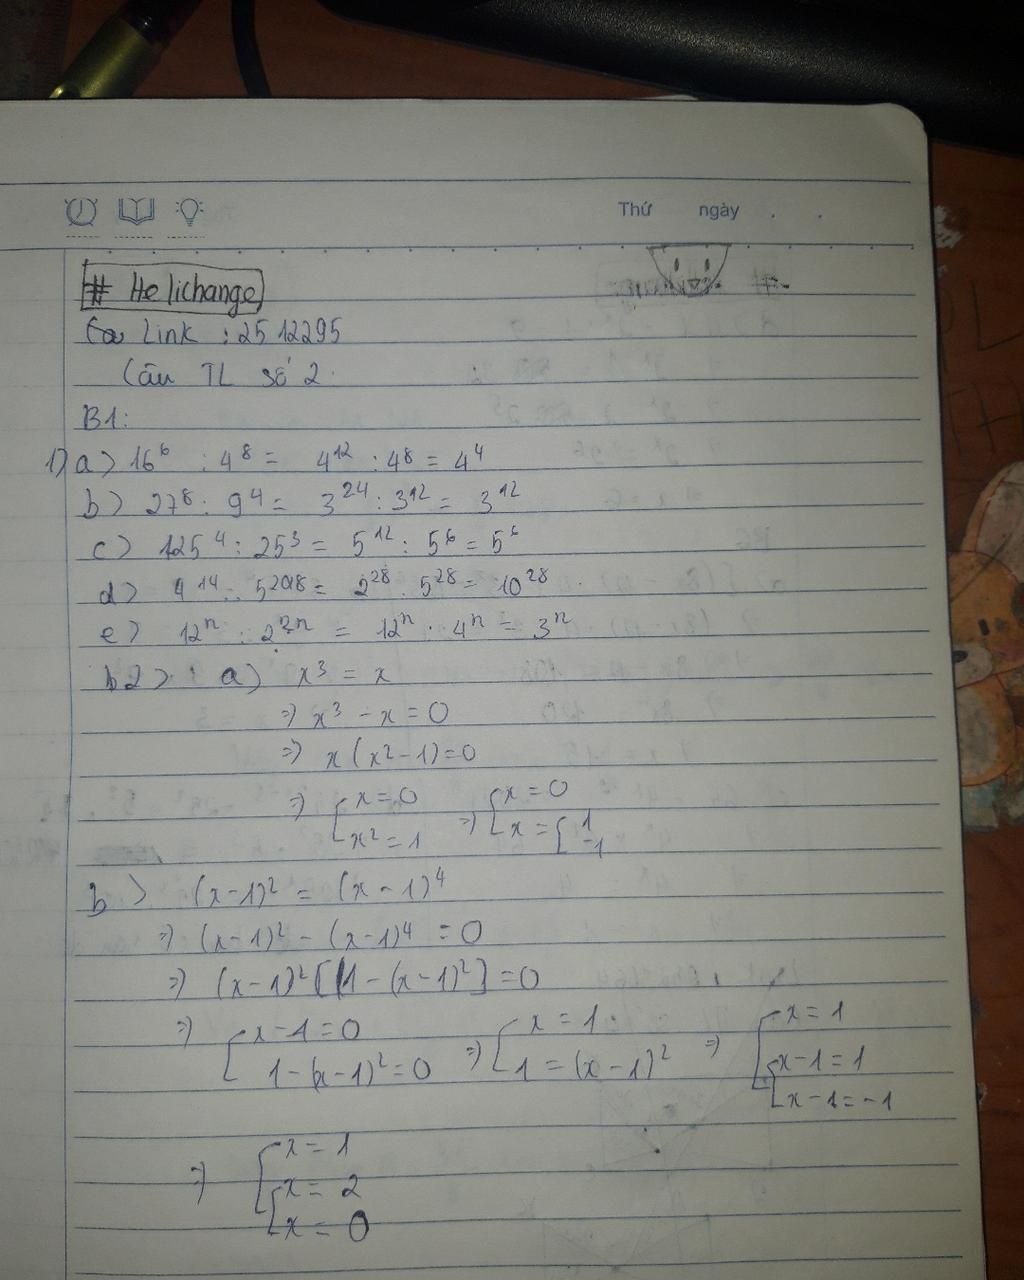 Thứ ngày . .
# Helichange
Link : 2512295
Câu TL số 2.
B1:
1) a) 16⁶ : 4⁸ = 4¹² : 4⁸ = 4⁴
b) 27⁸ : 9⁴ = 3²⁴ : 3¹² = 3¹²
c) 125⁴ : 25³ = 5¹² : 5⁶ = 5⁶
d) 4¹⁴ . 5²⁸ = 2²⁸ . 5²⁸ = 10²⁸ .
e) 12ⁿ : 2²ⁿ = 12ⁿ . 4ⁿ = 3ⁿ
b2) : a) x³ = x
=> x³ - x = 0
=> x(x² - 1) = 0
=> [ x = 0 => [ x = 0
x² = 1 x = [ 1
-1
b) (x-1)² = (x-1)⁴
=> (x-1)² - (x-1)⁴ = 0
=> (x-1)² [1 - (x-1)²] = 0
=> [ x-1 = 0 => [ x = 1 => [ x = 1
1 - (x-1)² = 0 1 = (x-1)² [ x-1 = 1
x-1 = -1
=> [ x = 1
[ x = 2
x = 0